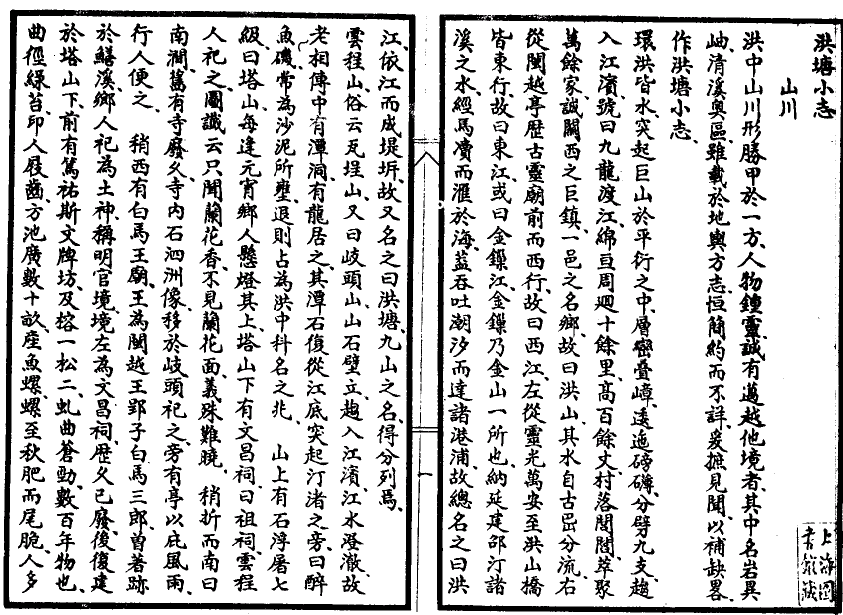 洪塘小志
山川
洪中山川形勝甲於一方、人物鍾靈、誠有邁越他境者、其中名岩異
岫、清溪奧區、雖載於地輿方志、恒簡約而不詳、爰摭見聞、以補缺畧、
作洪塘小志、
環洪皆水、突起巨山於平衍之中、層巒疊嶂、逶迤磅礴、分劈九支、趨
入江濱、號曰九龍渡江、綿亘周廻十餘里、高百餘丈、村落閭閻、萃聚
萬餘家、誠闗西之巨鎮、一邑之名鄉、故曰洪山、其水自古岊分流、右
從閩越亭歷古靈廟前而西行、故曰西江、左從靈光萬安至洪山橋
皆東行、故曰東江、或曰金鏁江、金鏁乃金山一所也、納延建邵汀諸
溪之水、經馬瀆而滙於海、葢吞吐潮汐而達諸港浦、故總名之曰洪
江、依江而成堤坼、故又名之曰洪塘、九山之名、得分列焉、
雲程山、俗云瓦埕山、又曰岐頭山、山石壁立、趨入江濱、江水澄澈、故
老相傳中有潭洞、有龍居之、其潭石復從江底突起汀渚之旁、曰醉
魚磯、常為沙泥所壅、退則占為洪中科名之兆、 山上有石浮屠七
級、曰塔山、每逢元宵、鄉人懸燈其上、塔山下有文昌祠、曰祖祠、雲程
人祀之、圖讖云、只聞蘭花香、不見蘭花面、義殊難曉、 稍折而南曰
南澗、舊有寺、廢久、寺內石泗洲像、移於岐頭祀之、旁有亭以庇風雨、
行人便之、 稍西有白馬王廟、王為閩越王郢子白馬三郎、曽著跡
於鱔溪、鄉人祀為土神、稱明官境、境左為文昌祠、歷久已廢、後復建
於塔山下、前有篤祐斯文牌坊、及榕一松二、虬曲蒼勁、數百年物也、
曲徑綠苔、印人屐齒、方池廣數十畝、産魚螺、螺至秋肥而尾脆、人多
一
上海圖
書館藏